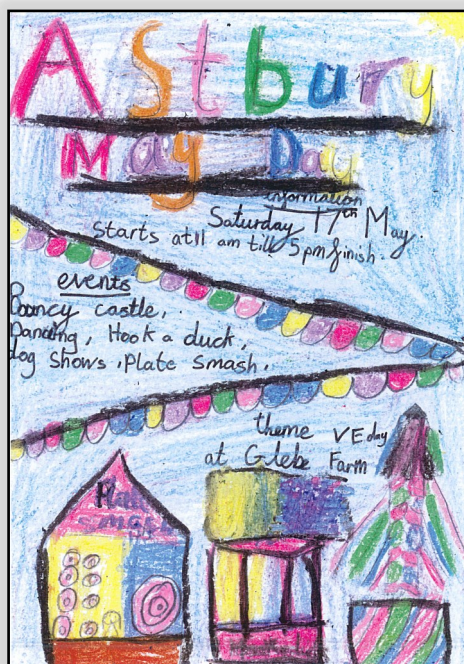 Astbury
May Day
information
Saturday 17th May.
Starts at 11 am till 5pm finish.
events
Bouncy castle,
Dancing, Hook a duck,
dog shows, Plate smash.
theme VE day
at Glebe Farm
Plate
smash